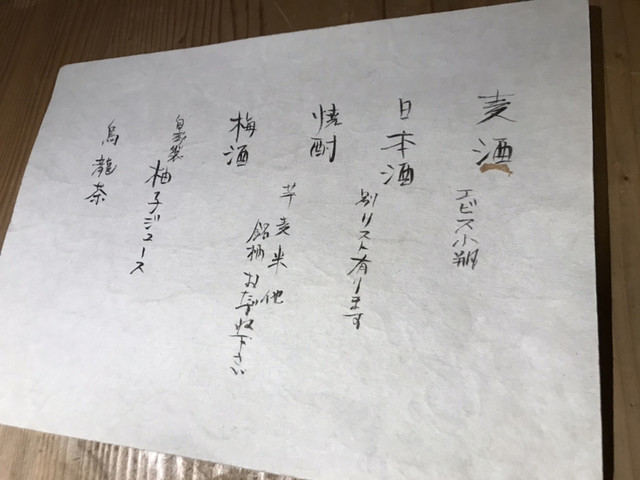 麦酒
エビス小瓶
日本酒
別リスト有ります
焼酎
芋麦米他
銘柄おたずね下さい
梅酒
自家製
柚子ジュース
烏龍茶